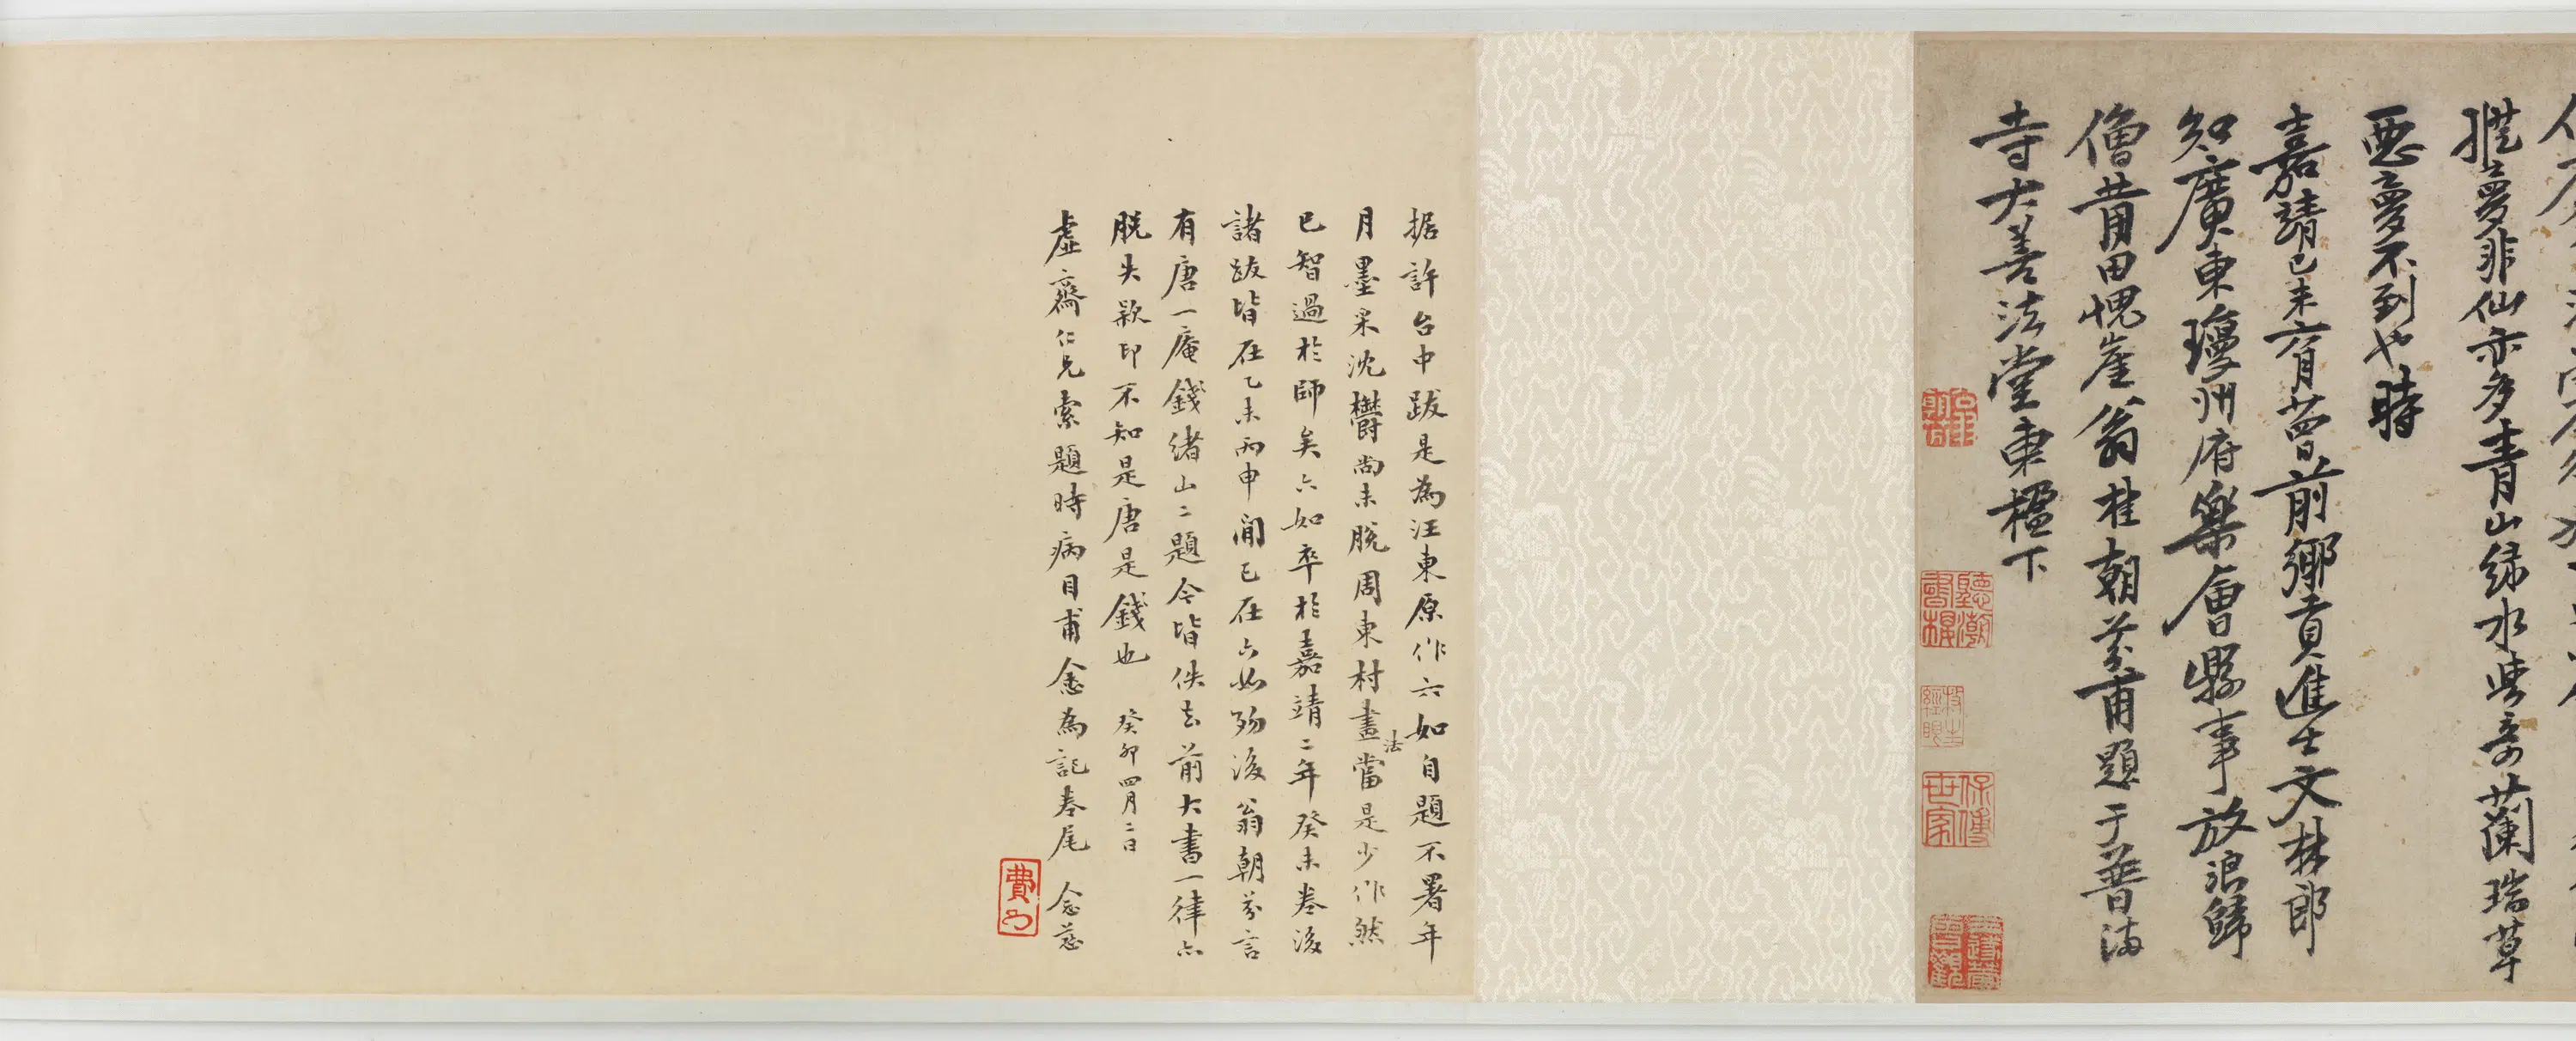 推夢非仙亦多青山綠水與奇蘭瑞草
惡夢不到也時
嘉靖己未六月曾前鄉貢進士文林郎
知廣東瓊州府樂會縣事放浪歸
僧昔田愧崖翁桂朝芳甫題于普滿
寺大善法堂東楹下
据許台中跋是為汪東原作六如自題不署年
月墨采沈鬱尚未脫周東村畫法當是少作然
已智過於師矣六如卒於嘉靖二年癸未卷後
諸跋皆在乙未丙申間已在六如歿後翁朝芳言
有唐一庵錢緒山二題今皆佚去前大書一律亦
脫失款印不知是唐是錢也 癸卯四月二日
虛齋仁兄索題時病目甫愈為記卷尾 念慈
聽濤書樓
保傅世家
費